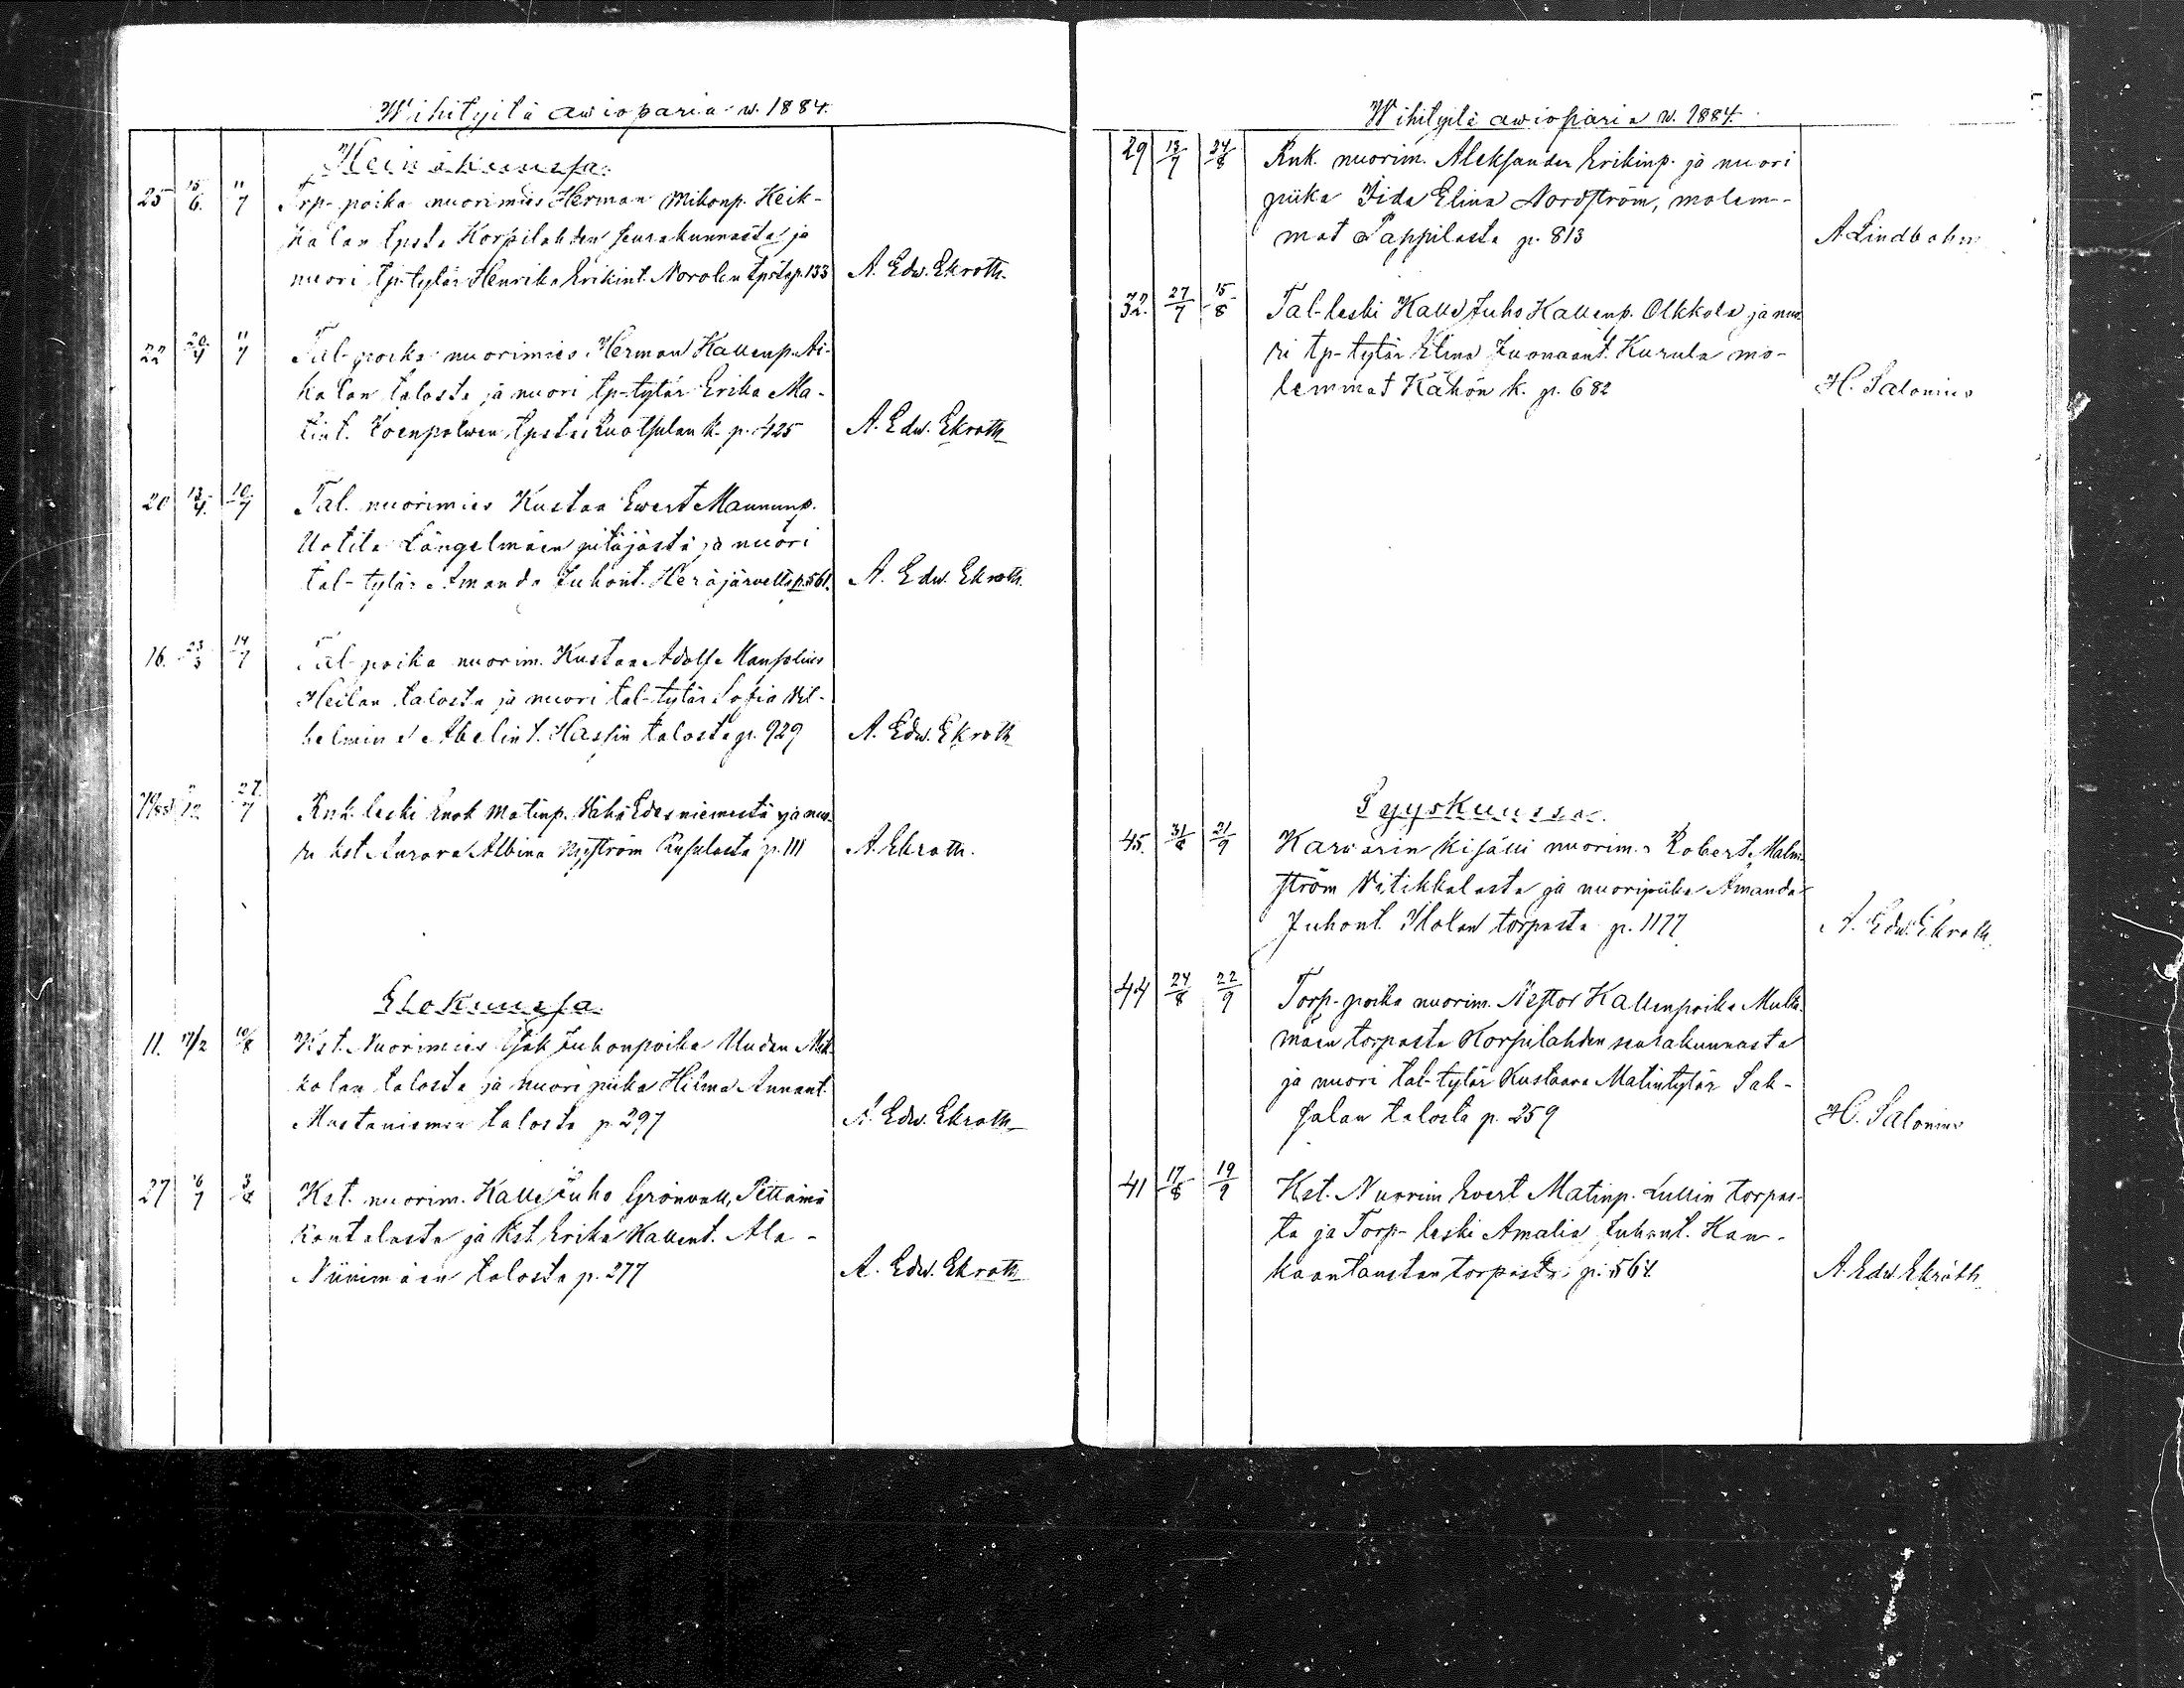 Wihityitä awioparia w. 1884.
Heinäkuussa.
25 15/6. 11/7 Trp-poika nuorimies Herman Mikonp. Heik-
kalan tpsta Korpilahden seurakunnasta ja
nuori tp-tytär Henrika Erikint. Norolan tpsta p. 133 A. Edw. Ekroth.
22 20/4 11/7 Tal-poika nuorimies Herman Kallenp. Ai-
kalan talosta ja nuori tp-tytär Erika Ma-
tint. tpsta Ruotsulan k. p. 425 A. Edw. Ekroth
20 13/4. 10/7 Tal. nuorimies Kustaa Ewert Maununp.
Uotila Längelmäen pitäjästä ja nuori
tal-tytär Amanda Juhont. Heräjärveltä p. 561. A. Edw. Ekroth.
16. 23/3 14/7 Tal-poika nuorim. Kustaa Adolf
Heilan talosta ja nuori tal-tytär Sofia Vil-
helmina Abelint. Hassin talosta p. 929 A. Edw. Ekroth
12 27/7 Rnk. leski Enok Matinp. Vähä Edesniemestä ja nuo-
ri kst Aurora Albina Nyström p. 111 A. Ekroth.
Elokuussa.
11. 17/2 10/8 Kst. Nuorimies Isak Juhonpoika Uuden Mik-
kolan talosta ja nuori piika Hilma Annant.
Mustaniemen talosta p. 297 A. Edw. Ekroth
27 6/7 3/8 Kst. nuorim. Kalle Juho Grönvall,
talosta ja Kst. Erika Kallent. Ala-
Niinimäen talosta p. 277 A. Edw. Ekroth
Wihityitä awioparia w. 1884.
29 13/7 24/8 Rnk. nuorim. Aleksander Erikinp. ja nuori
piika Iida Elina Nordström, molem-
mat Pappilasta p. 813 A Lindbohm
32. 27/7 15/8 Tal-leski Kalle Juho Kallenp. Olkkola ja nuo-
ri tp-tytär Elina Juonaant. Kurula mo-
lemmat Kähön k. p. 682 H. Salonius
Syyskuussa.
45. 31/8 21/9 Karvarin kisälli nuorim. Robert Malm-
ström Vitikkalasta ja nuoripiika Amanda
Juhont. torpasta p. 1177 A. Edw. Ekroth.
44 24/8 22/9 Torp-poika nuorim. Nestor Kallenpoika Multa-
mäen torpasta Korpilahden seurakunnasta
ja nuori tal-tytär Kustaava Matintytär Sak-
salan talosta p. 259 H. Salonius
41 17/8 19/9 Kst. Nuorim Evert Matinp. Lullin torpas-
ta ja Torp-leski Amalia Juhont. Kan-
kaantaustan torpasta p. 564. A. Edw. Ekroth